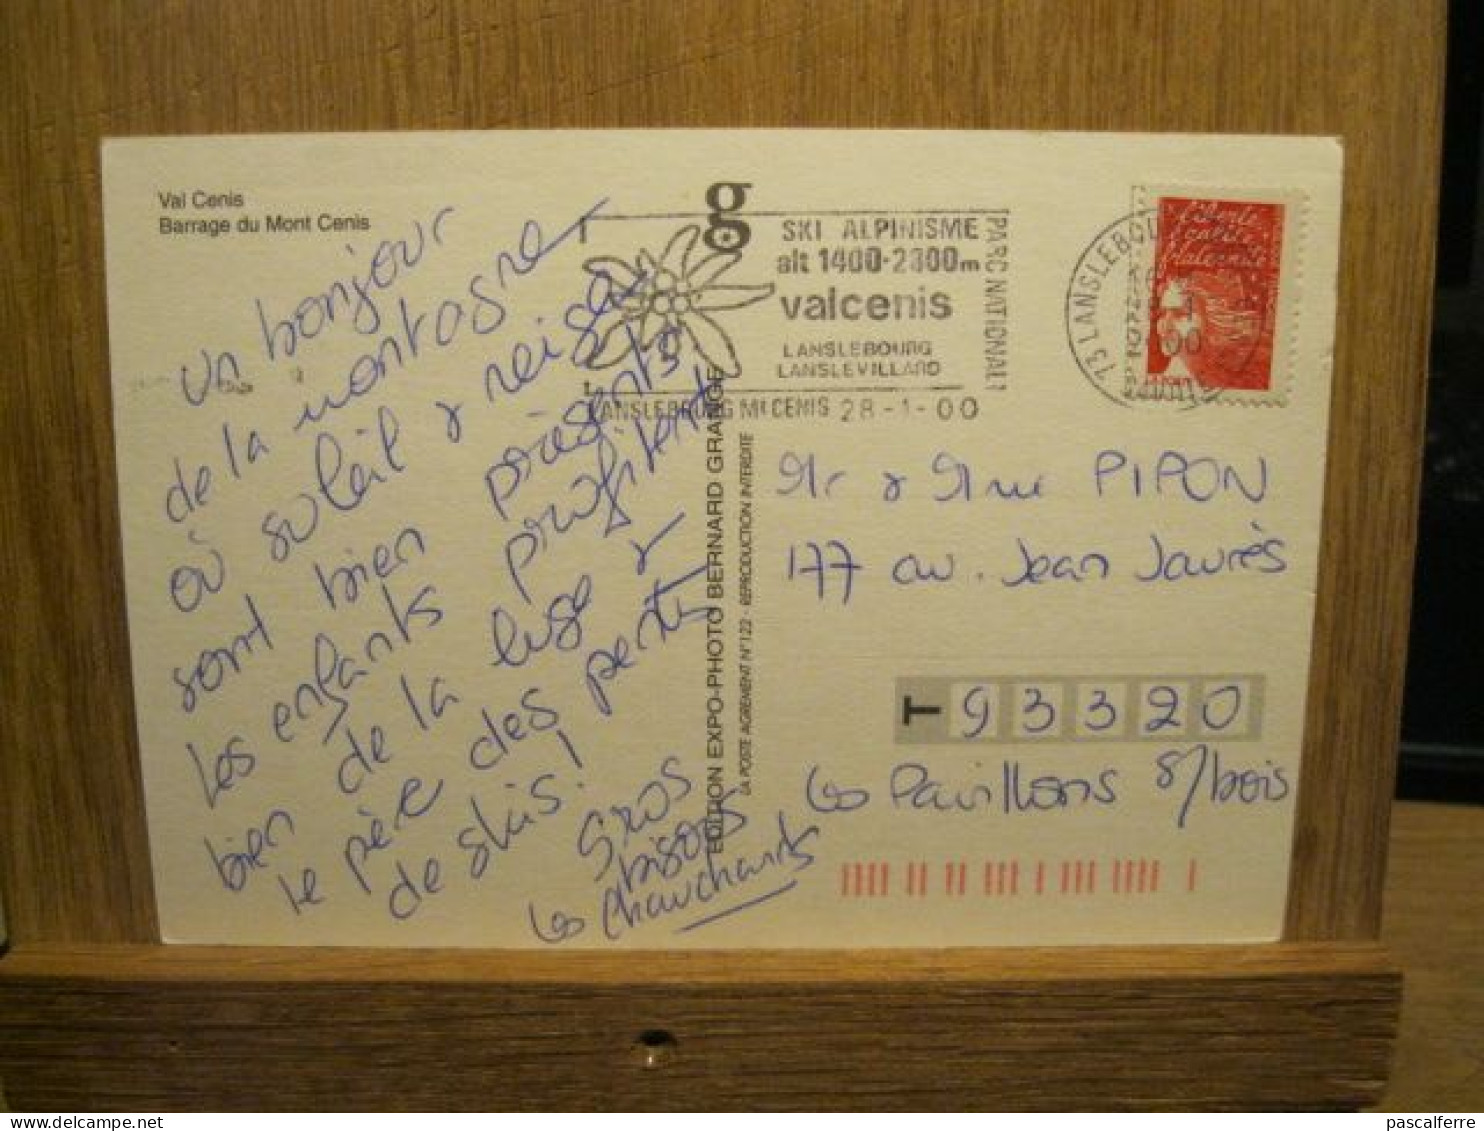 Val Cenis
Barrage du Mont Cenis
un bonjour
de la montagne
où soleil & neige
sont bien présents
les enfants profitent
bien de la luge &
le père des pentes
de skis!
Gros
bisous
Les Chauchards
EDITION EXPO-PHOTO BERNARD GRANGE
LA POSTE AGREMENT N° 122 - REPRODUCTION INTERDITE
g
SKI ALPINISME
alt 1400-2800m
valcenis
LANSLEBOURG
LANSLEVILLARD
PARC NATIONAL
LANSLEBOURG Mt CENIS 28-1-00
73 LANSLEBOU
Liberté
égalité
fraternité
Mr & Mme PIPON
177 av. Jean Jaurès
T 93320
Les Pavillons s/bois
pascalferre